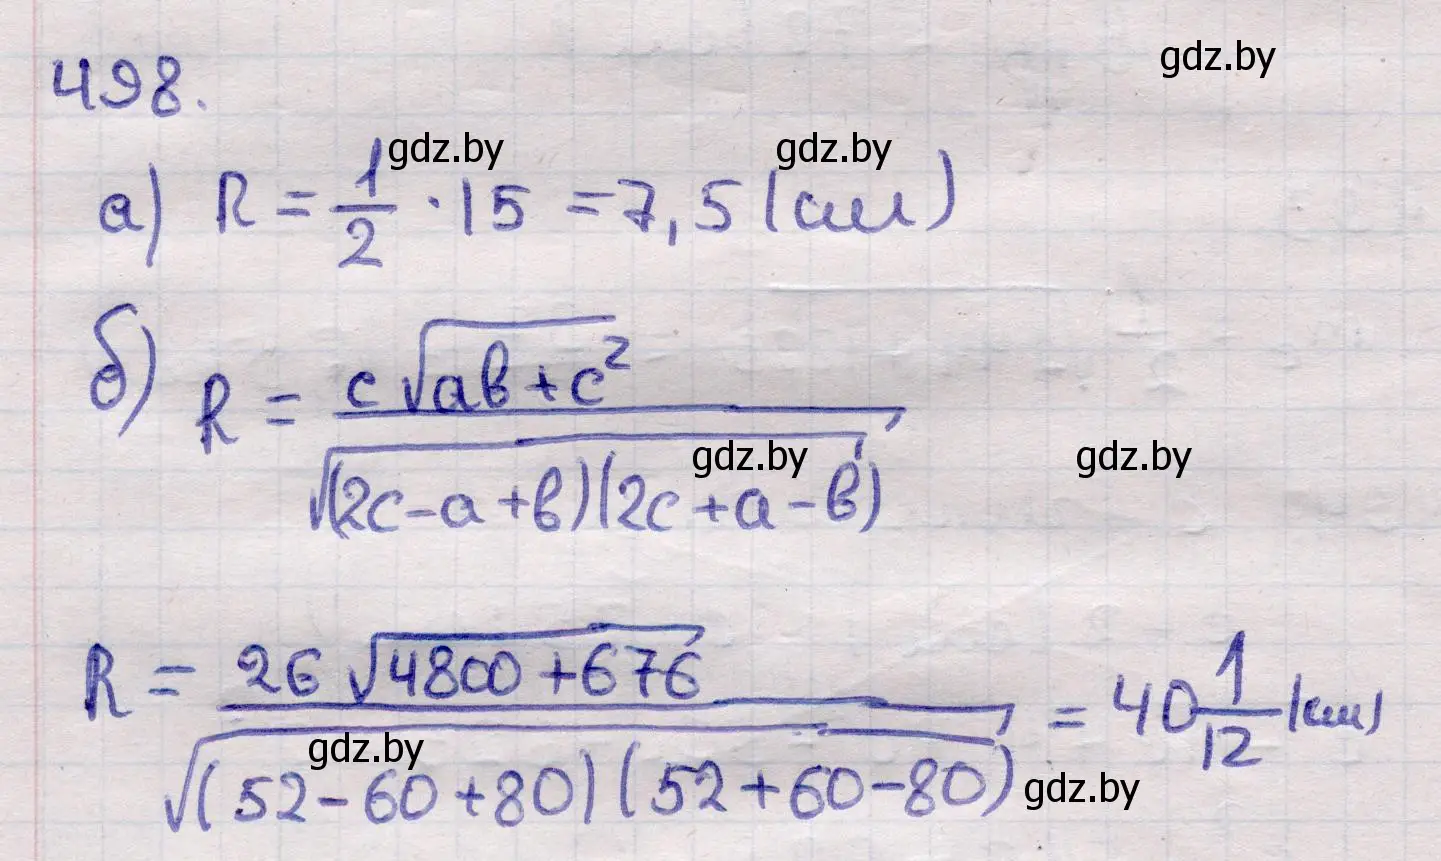 gdz.by
498.
gdz.by gdz.by
а) R = 1/2 · 15 = 7,5 (см)
б) R = c√(ab+c²) / √((2c-a+b)(2c+a-b))
gdz.by gdz.by
R = 26√(4800+676) / √((52-60+80)(52+60-80)) = 40 1/12 (см)
gdz.by gdz.by